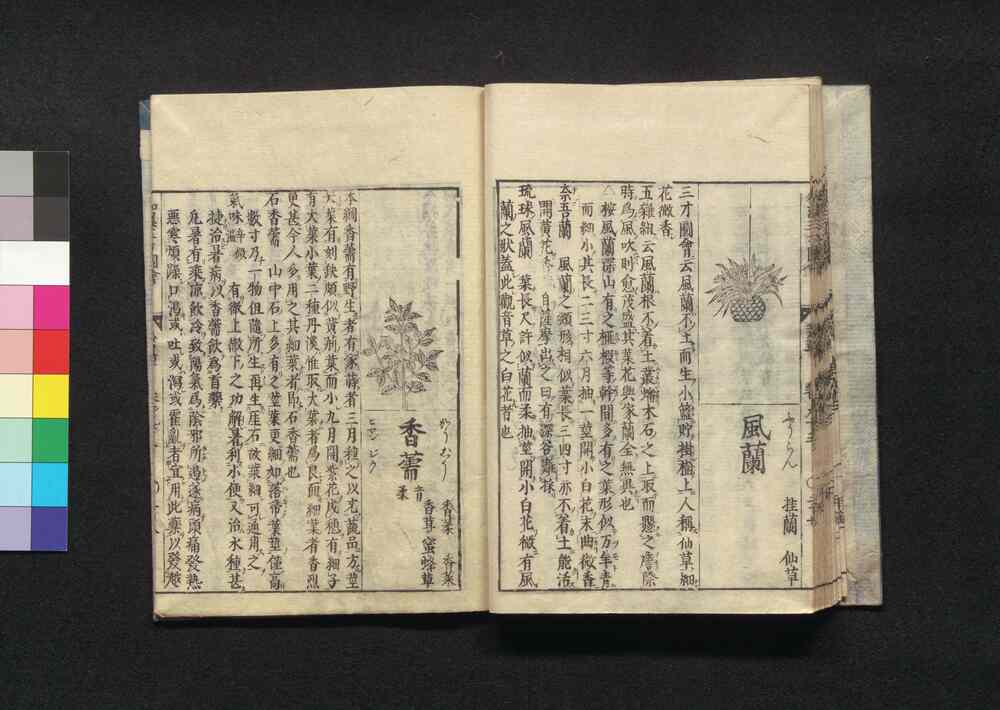 ふうらん
風蘭
挂蘭 仙草
三才圖會云風蘭不土而生小籃貯挂檐上人稱仙草細
花微香
五雜組云風蘭根不着土叢蟠木石之上取而懸之簷際
時爲風吹則愈茂盛其葉花與家蘭全無異也
△按風蘭深山有之榧椴等幹間多有之葉形似万年青
而細小其長二三寸六月抽一莖開小白花末曲微香
奈吾蘭 風蘭之類形相似葉長三四寸亦不着土能活
開黄花
琉球風蘭 葉長尺許似蘭而柔抽莖開小白花微有風
蘭之狀蓋此觀音草之白花者也
香薷 音柔
香菜 香葇
香茸 蜜蜂草
本綱香薷有野生者有家蒔者三月種之以充蔬品方莖
尖葉有刻缺頗似黄荊葉而小九月開紫花成穗有細子
有大葉小葉二種丹溪惟取大葉者爲良而細葉者香烈
更甚今人多用之其細葉者即石香薷也
石香薷 山中石上多有之莖葉更細如落帚葉莖僅高
數寸乃一物但隨所生而再生厓石故葉細可通用之
氣味辛微温 有徹上徹下之功解暑利水便又治水種甚
捷治暑病以香薷飲爲首藥
凡暑有乘凉飲冷致陽氣爲陰邪所遏遂病頭痛發熱
惡寒煩躁口渴或吐或瀉或霍亂者宜用此藥以發越